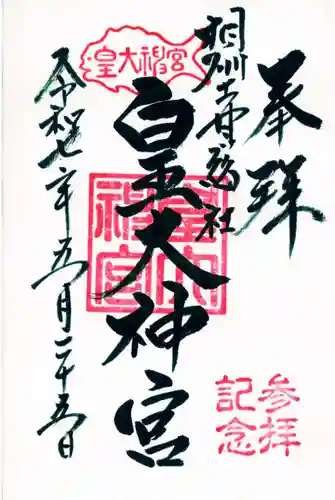 奉拝
相州土甘総社
皇大神宮
皇大神宮
皇大神宮
令和七年五月二十五日
参拝
記念